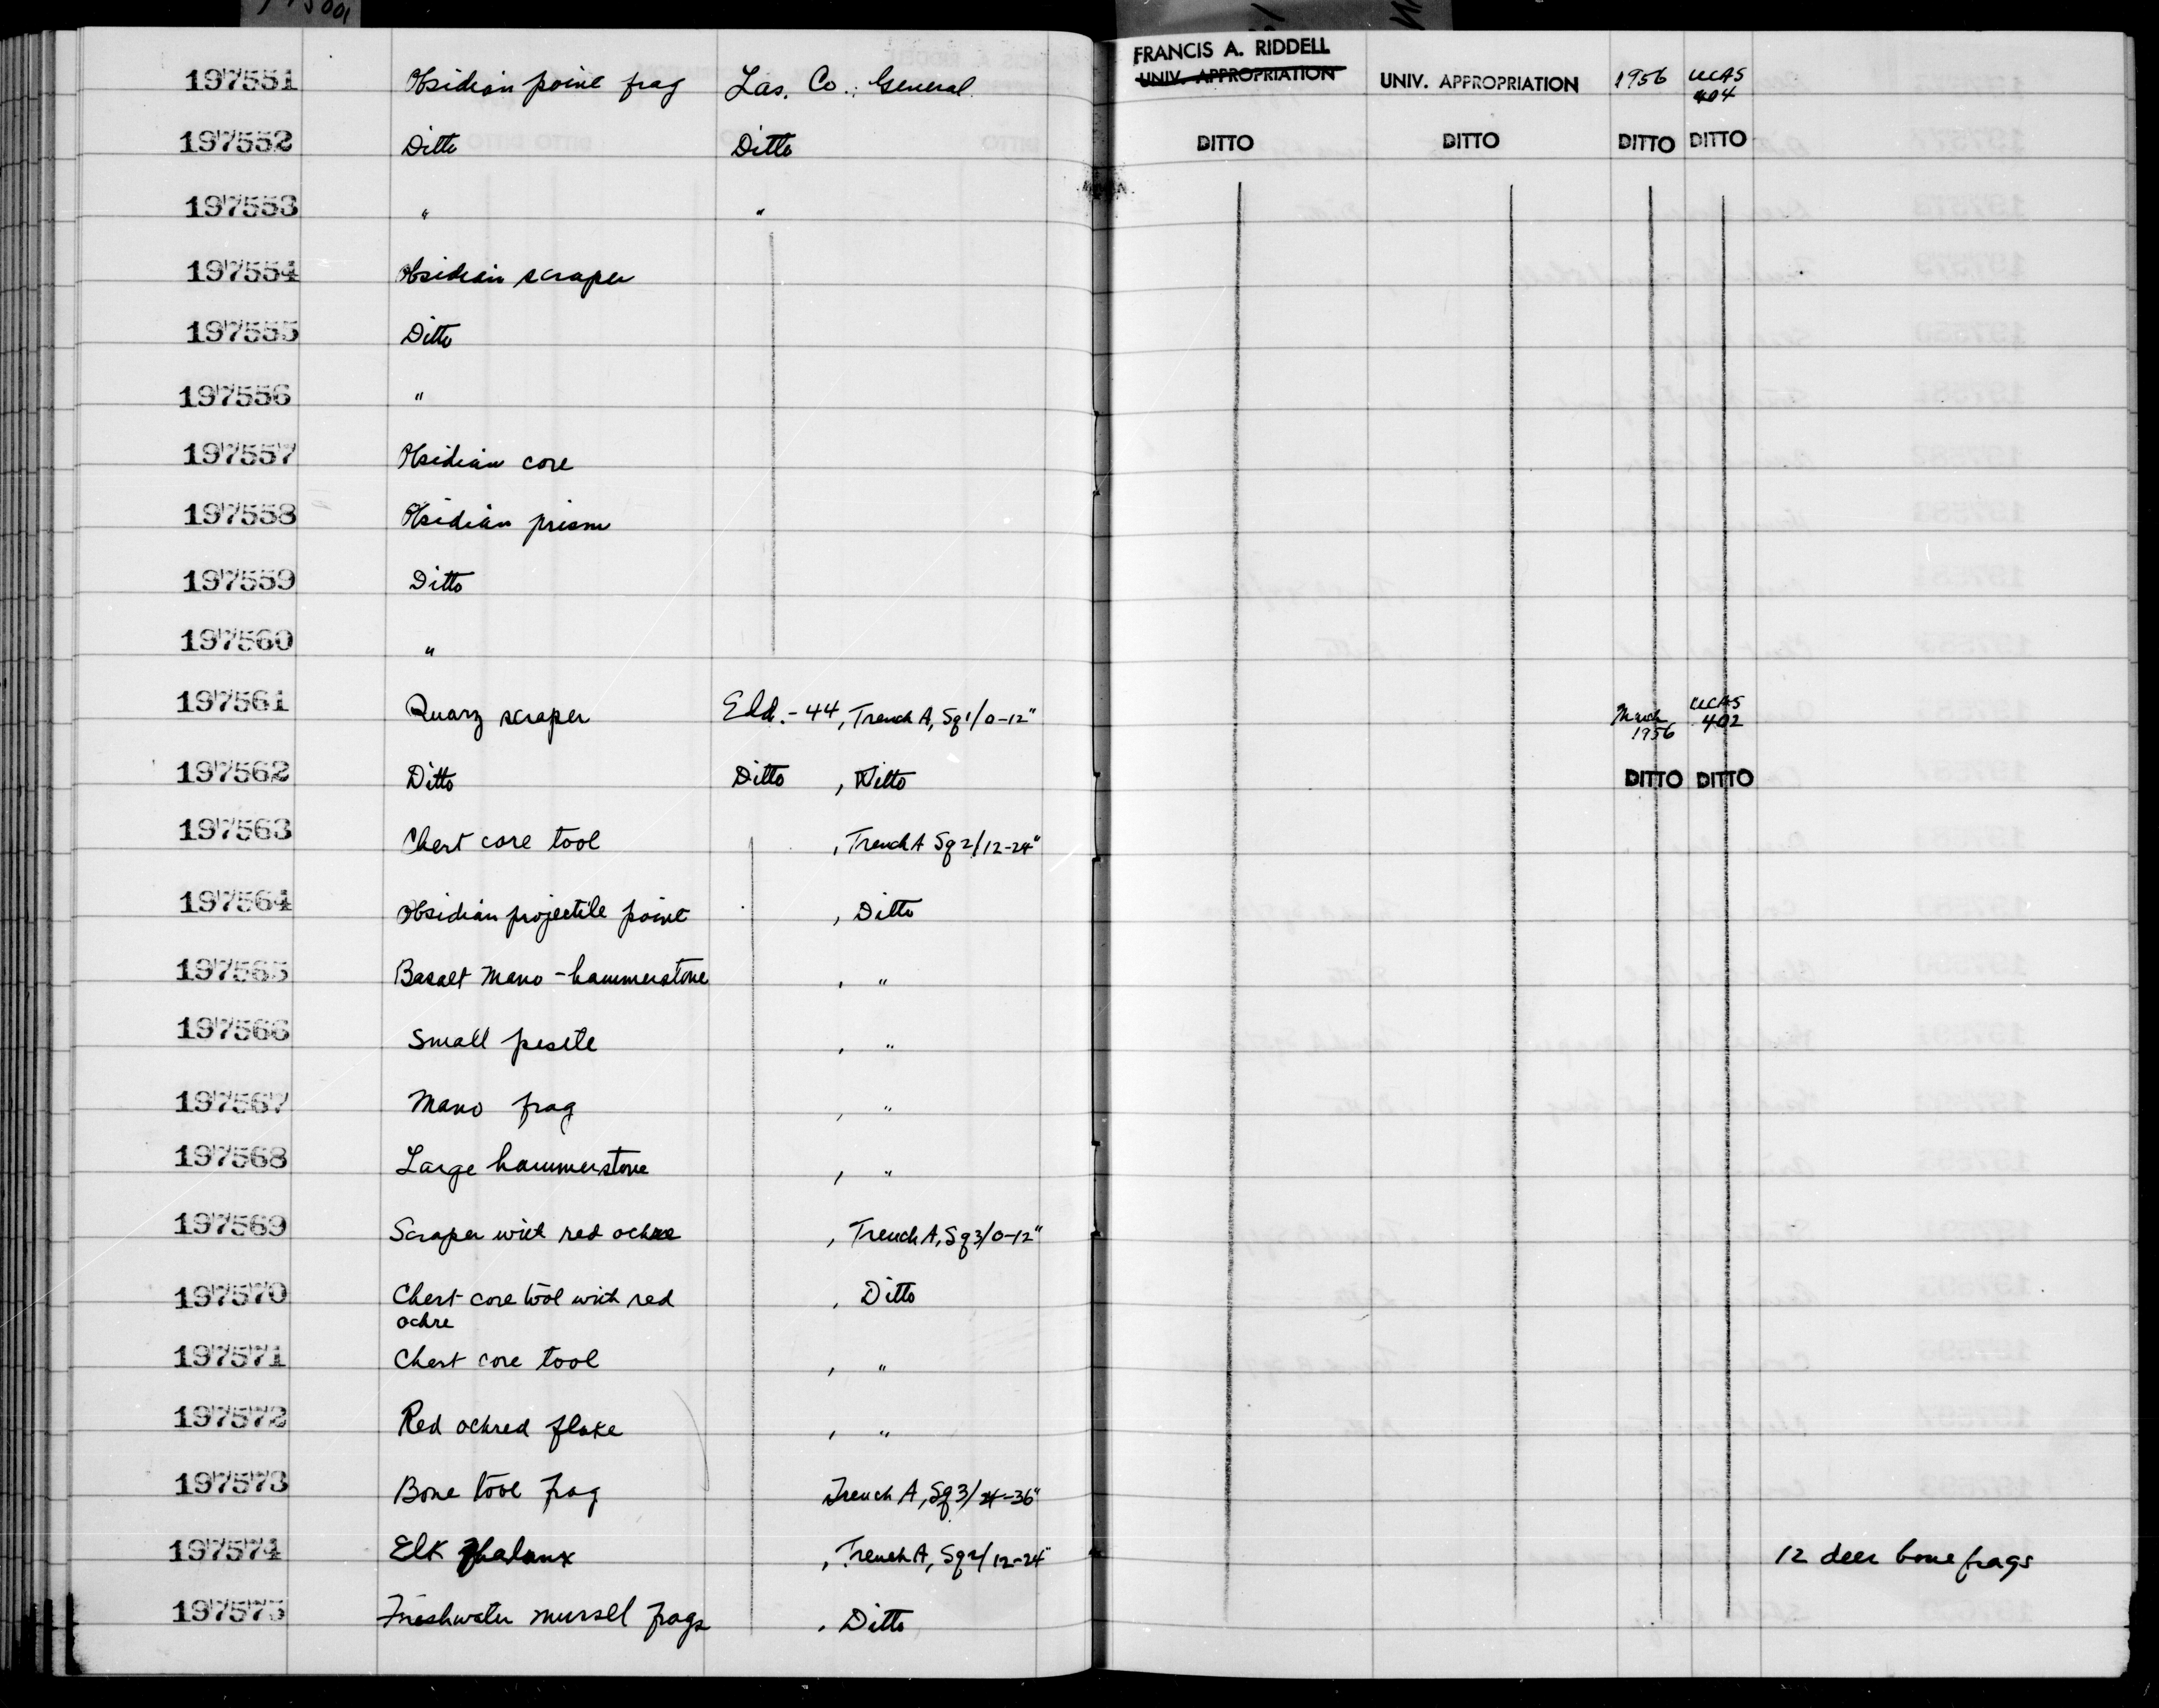 FRANCIS A. RIDDELL
197551 Obsidian point frag Las. Co., General UNIV. APPROPRIATION UNIV. APPROPRIATION 1956 UCAS
404
197552 Ditto Ditto DITTO DITTO DITTO DITTO
197553 " "
197554 Obsidian scraper
197555 Ditto
197556 "
197557 Obsidian core
197558 Obsidian prism
197559 Ditto
197560 "
197561 Quarz scraper Eld.-44, Trench A, Sq1/0-12" March 1956 UCAS 402
197562 Ditto Ditto , Ditto DITTO DITTO
197563 Chert core tool , Trench A Sq2/12-24"
197564 Obsidian projectile point , Ditto
197565 Basalt mano-hammerstone , "
197566 Small pestle , "
197567 Mano frag , "
197568 Large hammerstone , "
197569 Scraper with red ochre , Trench A, Sq3/0-12"
197570 Chert core tool with red , Ditto
ochre
197571 Chert core tool , "
197572 Red ochred flake , "
197573 Bone tool frag Trench A, Sq3/24-36"
197574 Elk phalanx , Trench A, Sq2/12-24" 12 deer bone frags
197575 Freshwater mussel frags , Ditto